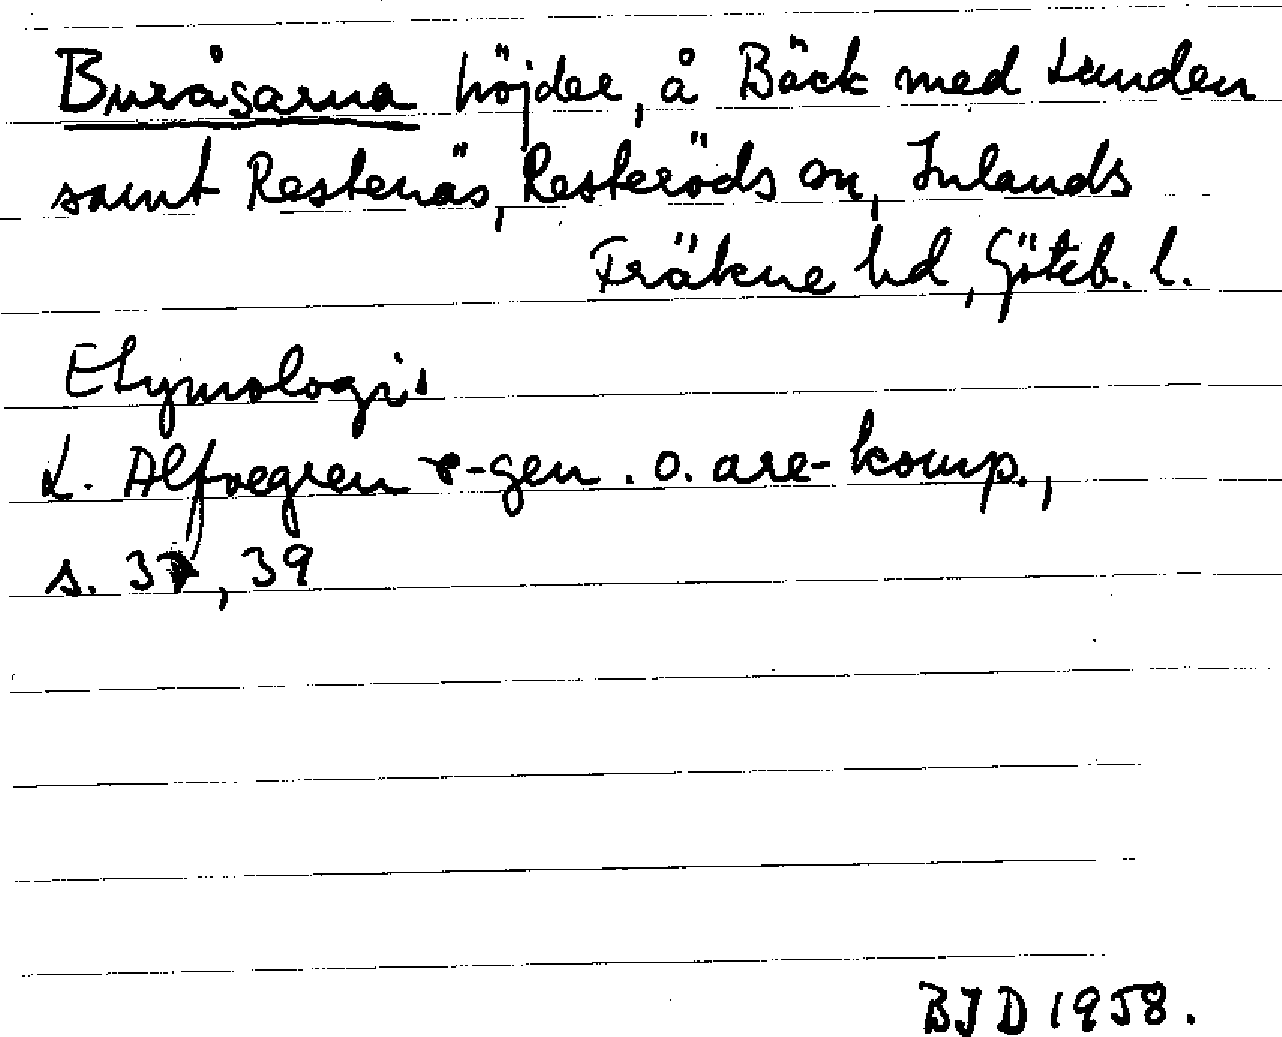 Buråsarna höjder, å Bäck med Lunden
samt Restenäs, Resteröds sn, Inlands
Fräkne hd, Göteb. l.
Etymologi.
L. Alfvegren r-gen. o. are-komp.,
s. 37, 39
BJD 1958.